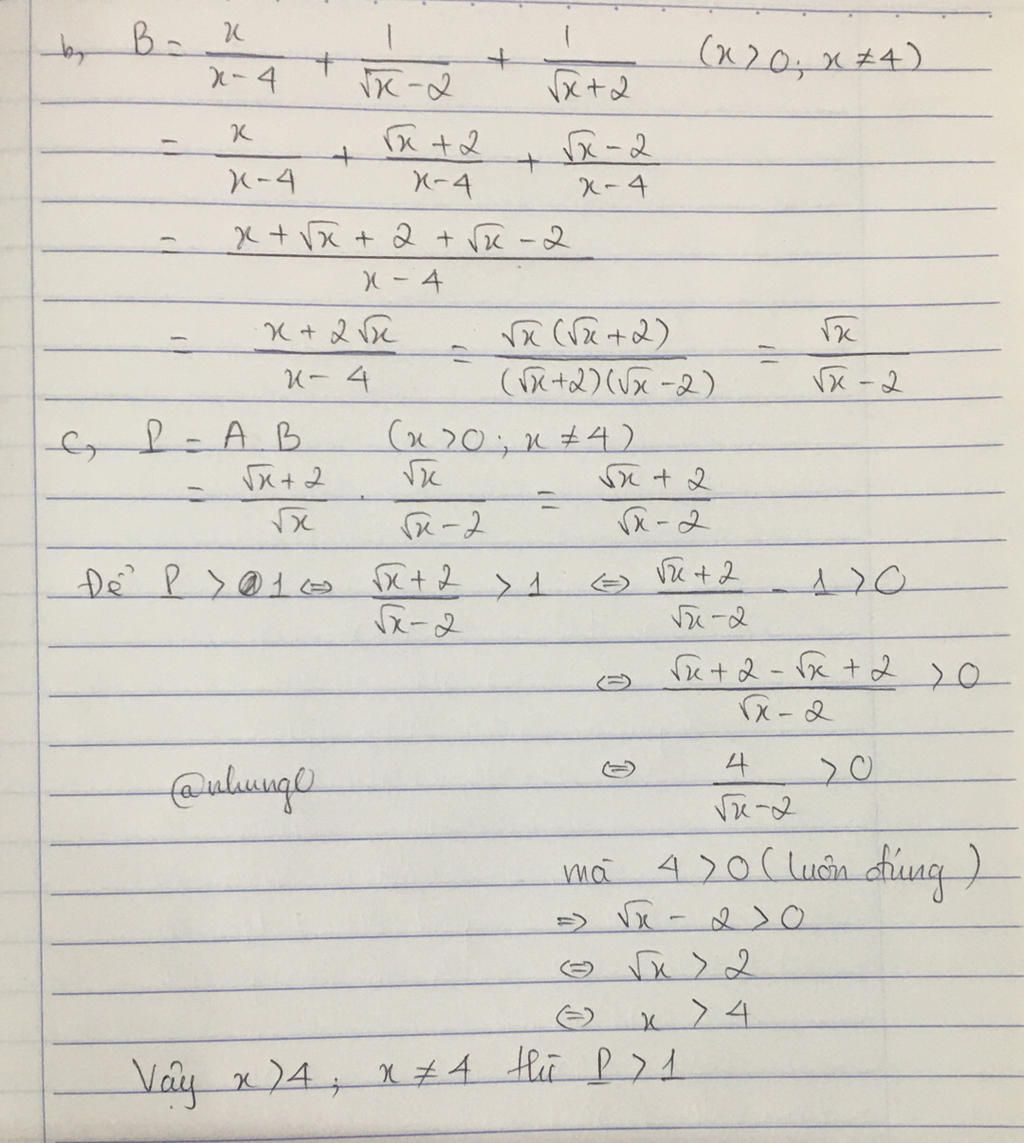 b, B = x/(x-4) + 1/(√x-2) + 1/(√x+2) (x>0; x≠4)
= x/(x-4) + (√x+2)/(x-4) + (√x-2)/(x-4)
= (x+√x+2+√x-2)/(x-4)
= (x+2√x)/(x-4) = √x(√x+2)/((√x+2)(√x-2)) = √x/(√x-2)
c, P = A.B (x>0; x≠4)
= (√x+2)/√x . √x/(√x-2) = (√x+2)/(√x-2)
Để P > 1 ⇔ (√x+2)/(√x-2) > 1 ⇔ (√x+2)/(√x-2) - 1 > 0
⇔ (√x+2-√x+2)/(√x-2) > 0
@nhung0 ⇔ 4/(√x-2) > 0
mà 4 > 0 (luôn đúng)
⇒ √x - 2 > 0
⇔ √x > 2
⇔ x > 4
Vậy x>4; x≠4 thì P > 1